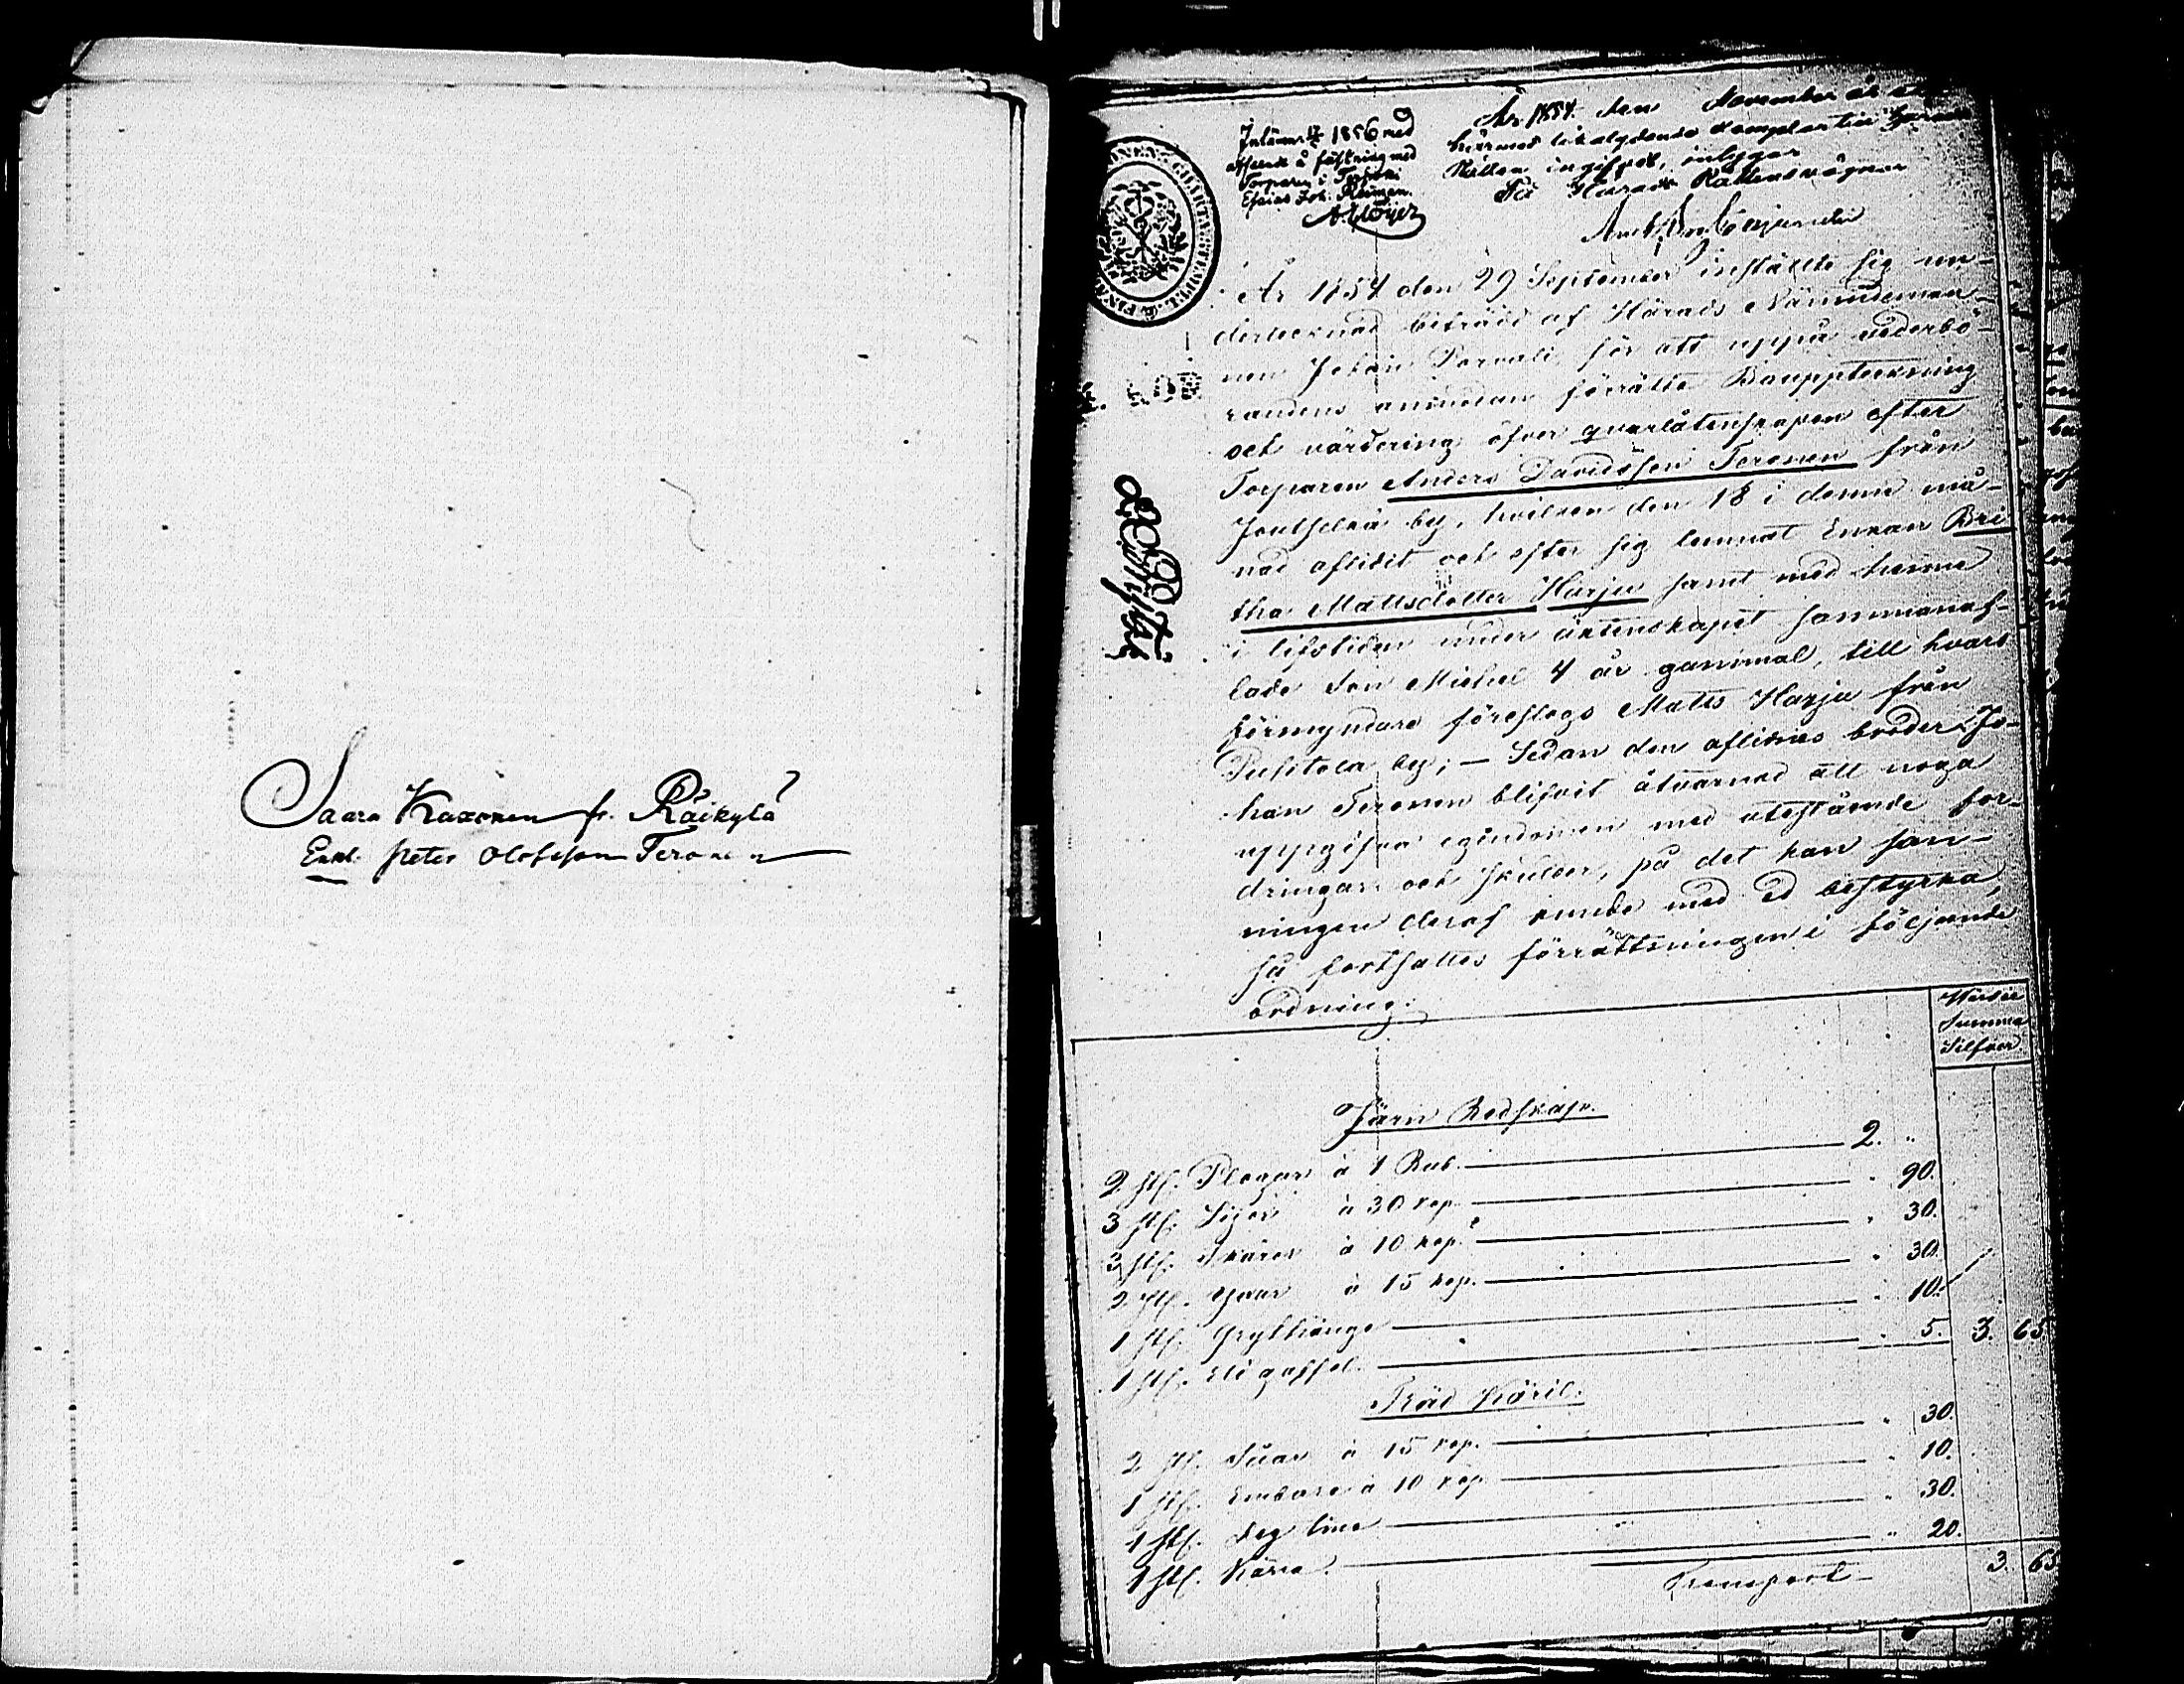 Saara Kaxonen fr. Räikylä
Enkl. Peter Olofsson Teronen
Inlämt 1856 med
afseende å fästning med
Torparen i
Esaias Joh.
År 1854 den November är ett
härmed likalydande exemplar till Härads
Rätten ingifvet, intygar
På Härads Rättens vägnar
År 1854 den 29 September inställte sig un-
dertecknad biträdd af Härads Nämndeman-
nen Johan Parvali, för att uppå vederbö-
randens anmodan förrätta Bouppteckning
och värdering öfver qvarlåtenskapen efter
Torparen Anders Davidsson Teronen från
Joutselkä by, hvilken den 18 i denne må-
nad aflidit och efter sig lemnat Enkan Bri
tha Mattsdotter Harju samt med henne
i lifstiden under äktenskapet sammanaf-
lade Son Michel 4 år gammal, till hvars
förmyndare föreslogs Matts Harju från
by; — Sedan den aflidnes broder Jo-
han Teronen blifvit åtvarnad att noga
uppgifva egendomen med utestående for-
dringar och skulder, på det han san-
ningen deraf kunde med ed bestyrka,
så fortsattes förrättningen i följande
ordning:
Summa
Silfver
Järn Redskap.
2 st. Plogar à 1 Rub. 2. "
3 st. Lijor à 30 kop. " 90.
3 st. Skäror à 10 kop. " 30.
2 st. Yxar à 15 kop. " 30.
1 st. Grythänge " 10.
1 st. Eldgaffel " 5. 3. 65
Träd Käril.
2 st. Såar à 15 kop. " 30.
1 st. Embare à 10 kop. " 10.
1 st. Deg tina " 30.
1 st. Kärra " 20.
Transport 3. 65